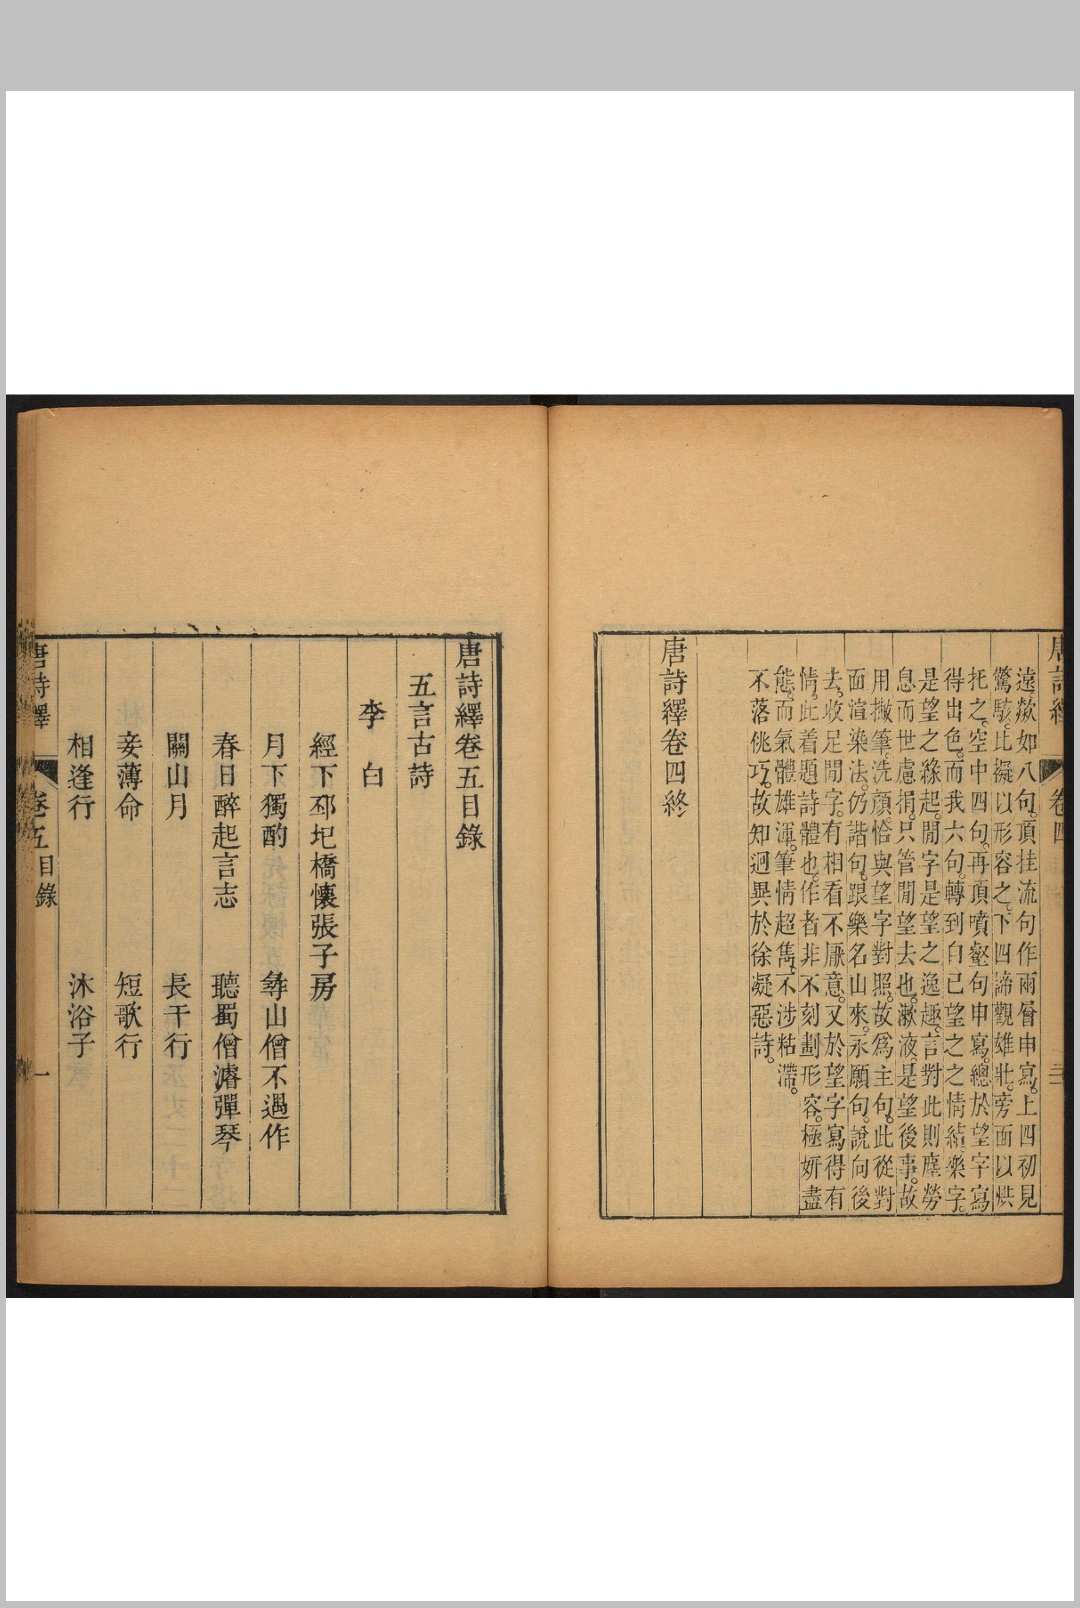 卷四
遠歘如八句。頂挂流句作兩層申寫。上四初見
驚駭。比擬以形容之。下四諦觀雄壯。旁面以烘
托之。空中四句。再頂噴壑句申寫。總於望字寫
得出色。而我六句。轉到自已望之之情緒。樂字。
是望之緣起。閒字是望之逸趣。言對此則塵勞
息而世慮捐。只管閒望去也。漱液是望後事。故
用撇筆。洗顏恰與望字對照。故爲主句。此從對
面渲染法。仍諧句。跟樂名山來。永願句。說向後
去。收足閒字。有相看不厭意。又於望字寫得有
情。此着題詩體也。作者非不刻劃形容。極妍盡
態。而氣體雄渾。筆情超雋。不涉粘滯。
不落佻巧。故知迥異於徐凝惡詩。
唐詩繹卷四終
唐詩繹卷五目錄
五言古詩
李白
經下邳圯橋懷張子房
月下獨酌　尋山僧不遇作
春日醉起言志　聽蜀僧濬彈琴
關山月　長干行
妾薄命　短歌行
相逢行　沐浴子
唐詩繹　卷五目錄　一